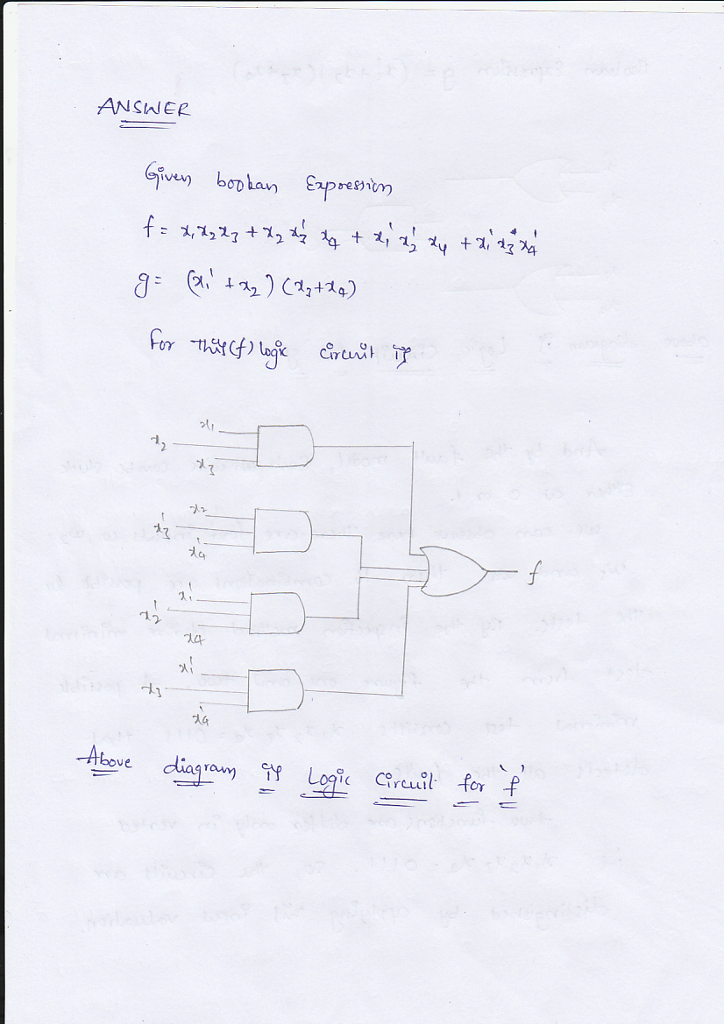 ANSWER
Given boolean Expression
f = x₁x₂x₃ + x₂ x₃' x₄ + x₁' x₂' x₄ + x₁' x₃ x₄'
g = (x₁' + x₂) (x₃+x₄)
For this(f) logic circuit is
x₁
x₂
x₃
x₂
x₃'
x₄'
x₁'
x₂'
x₄
x₁'
x₃
x₄'
f
Above diagram is Logic Circuit for 'f'